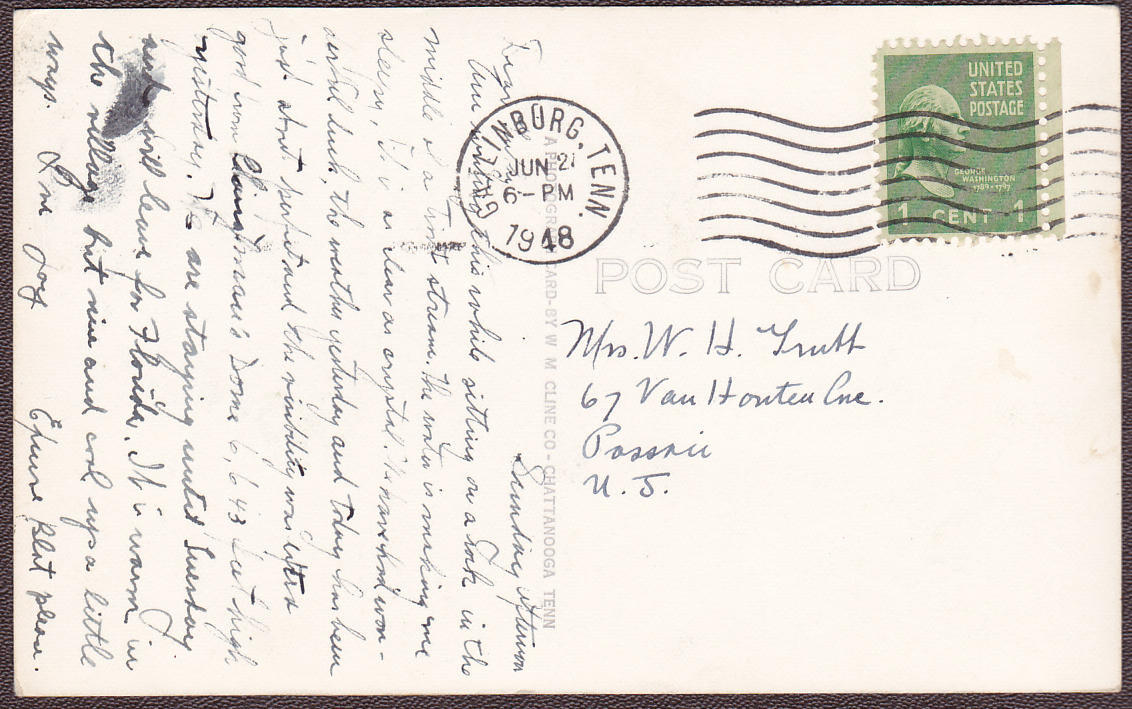 Sunday afternoon
Dear
Am writing this while sitting on a rock in the
middle of a stream. The water is making me
sleepy, It is as clear as crystal. We have had won-
derful luck, the weather yesterday and today has been
just about perfect and the visibility was extra
good from Clingman's Dome 6,643 feet high
yesterday. We are staying until Tuesday
and will leave for Florida. It is warm in
the village but nice and cool up a little
ways. Love
Excuse Blot please.
GATLINBURG, TENN.
JUN 21
6-PM
1948
UNITED
STATES
POSTAGE
GEORGE
WASHINGTON
1789-1797
1 CENT 1
POST CARD
A PHOTOGRAPH CARD-BY W M CLINE CO-CHATTANOOGA TENN
Mrs. W. H. Truitt
67 Van Houten Ave.
Passaic
N. J.